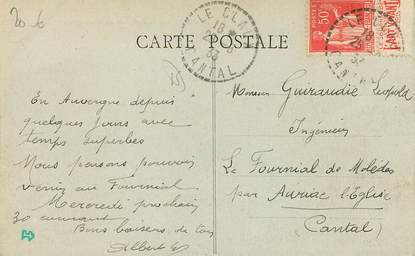 30 6
CARTE POSTALE
LE CLA
18
33
CANTAL
50
En Auvergne depuis
quelques jours avec
temps superbes
Nous pensons pouvoir
venir au Fournial
Mercredi prochain
30 courant
Bons baisers de tous
Albert
Monsieur Guiraudie Léopold
Ingénieur
Le Fournial de Molèdes
par Auriac l'Eglise
(Cantal)